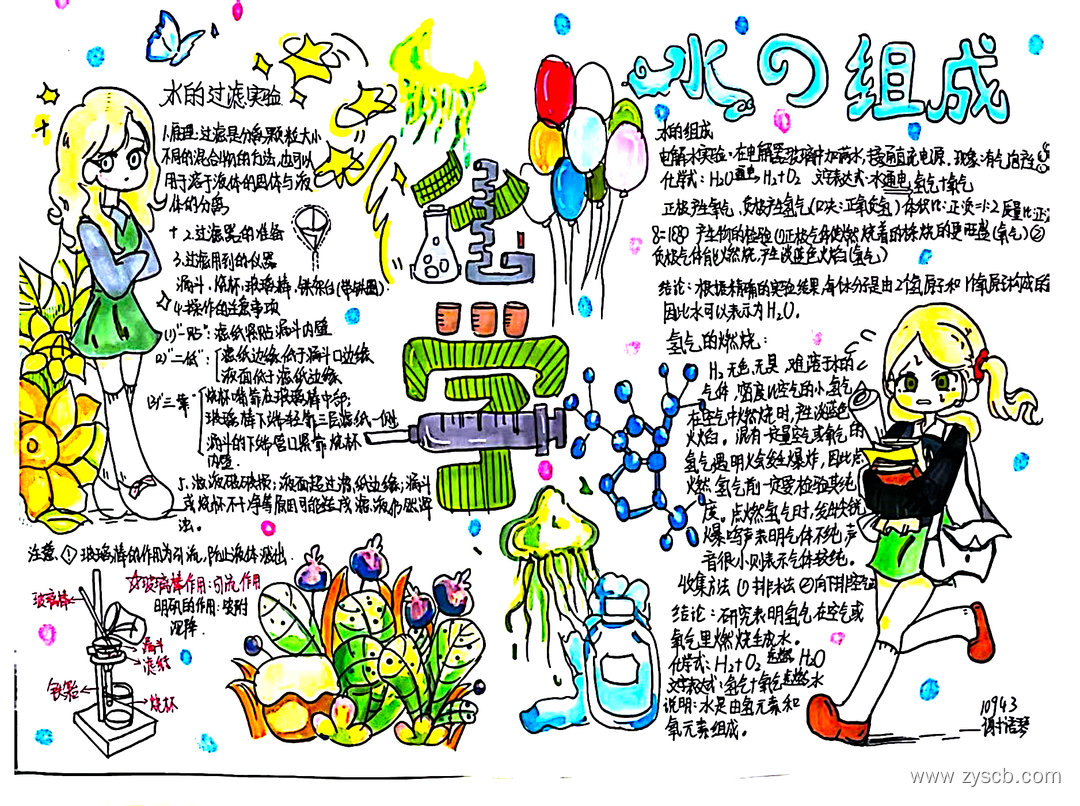 水的过滤实验
1.原理:过滤是分离颗粒大小
不同的混合物的方法,也可以
用于溶于液体的固体与液
体的分离
2.过滤器的准备
3.过滤用到的仪器
漏斗、烧杯、玻璃棒、铁架台(带铁圈)
4.操作的注意事项
(1)"一贴":滤纸紧贴漏斗内壁
(2)"二低":滤纸边缘低于漏斗口边缘
液面低于滤纸边缘
(3)"三靠":烧杯嘴靠在玻璃棒中部;
玻璃棒下端轻靠三层滤纸一侧
漏斗的下端管口紧靠烧杯
内壁
5.滤纸破损;液面超过滤纸边缘;漏斗
或烧杯不干净等原因可能造成滤液仍然浑
浊。
注意:①玻璃棒的作用为引流,防止液体溅出.
玻璃棒作用:引流作用
明矾的作用:吸附
沉降.
玻璃棒
漏斗
滤纸
铁架台
烧杯
化学
水の组成
水的组成
电解水实验:在电解器玻璃中加满水,接通直流电源.现象:有气泡产生
化学式:H₂O 通电 H₂+O₂ 文字表达式:水 通电 氢气+氧气
正极产生氧气,负极产生氢气(口诀:正氧负氢)体积比:正:负=1:2 质量比:正:
8=1 产生物的检验①正极气体使燃烧着的 燃的更旺盛(氧气)②
负极气体能燃烧,产淡蓝色火焰(氢气)
结论:根据精确的实验结果,每个水分子是由2个氢原子和1个氧原子构成的
因此水可以表示为H₂O.
氢气的燃烧:
H₂无色、无臭、难溶于水的
气体,密度比空气的小,氢气
在空气中燃烧时,产生淡蓝色
火焰。混有一定量空气或氧气的
氢气遇明火会发生爆炸,因此点
燃氢气前一定要检验其纯
度。点燃氢气时,发出尖锐
爆鸣声表明气体不纯,声
音很小则表示气体较纯.
收集方法 ①排水法 ②向下排空气
结论:研究表明氢气在空气或
氧气里燃烧生成水。
化学式:H₂+O₂ 点燃 H₂O
文字表达式:氢气+氧气 点燃 水
说明:水是由氢元素和
氧元素组成。
10943
www.zyscb.com